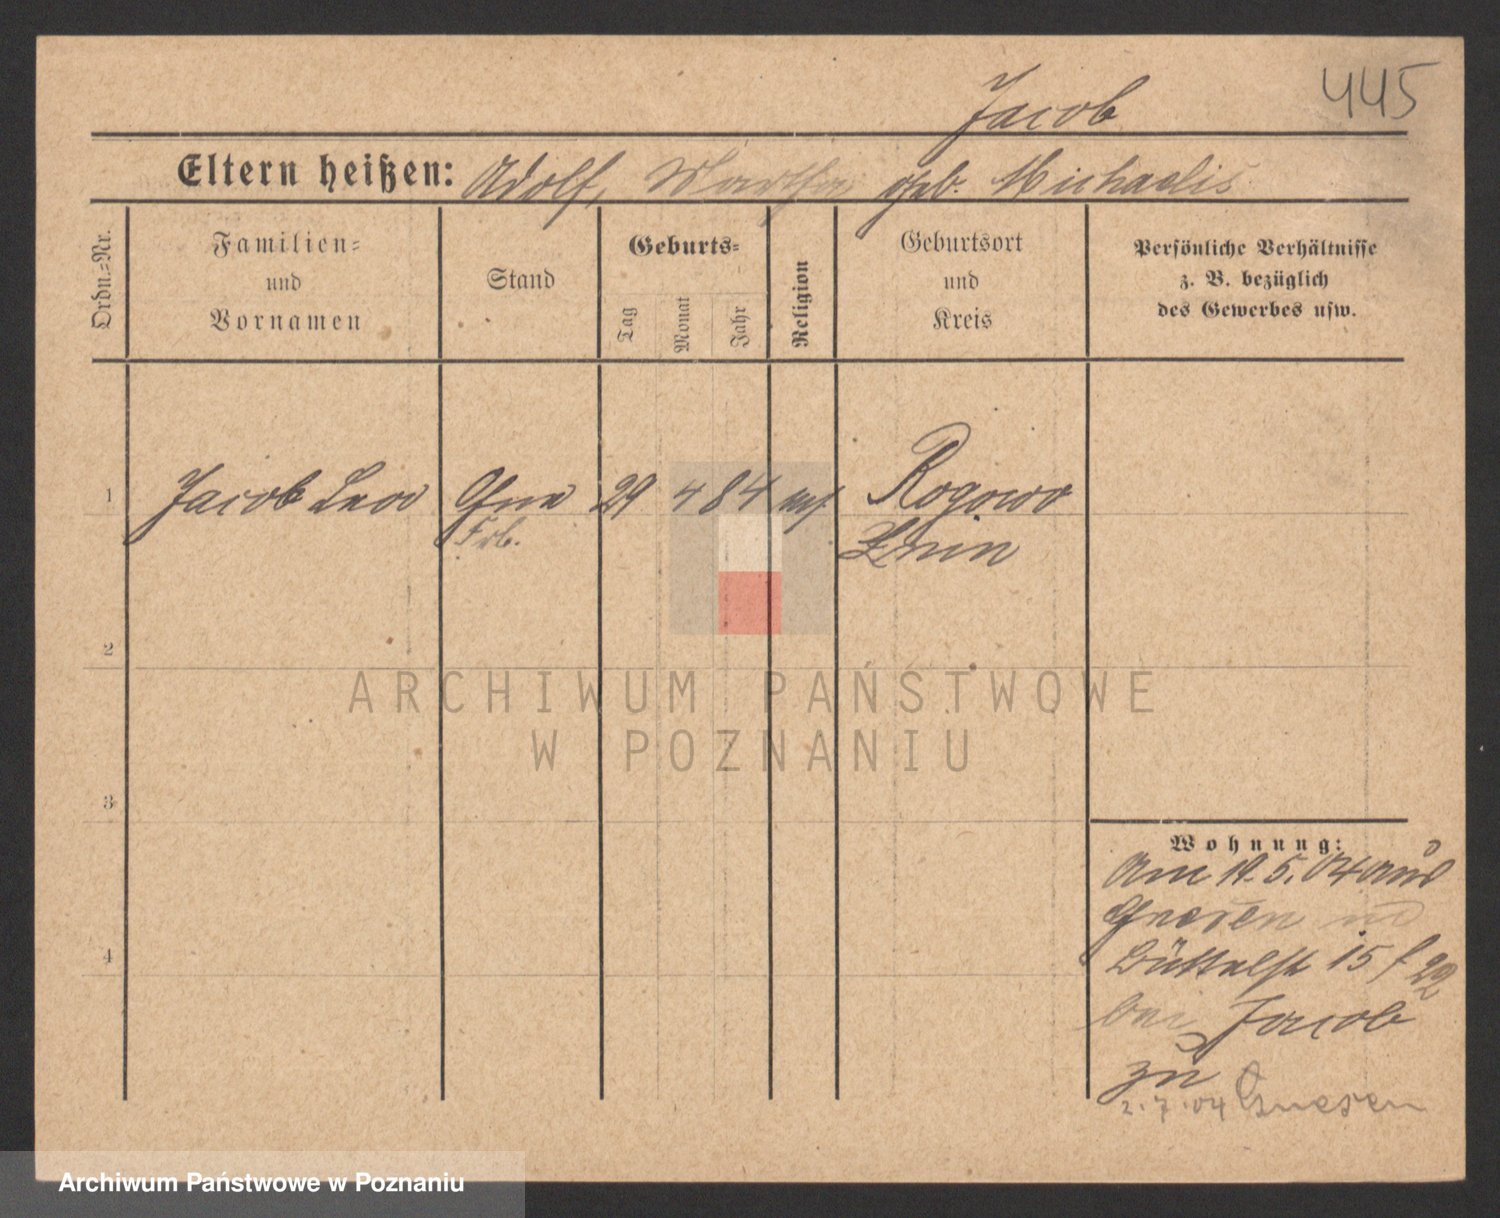 Jacob
445
Eltern heißen: Adolf, Martha geb. Michaelis
Ordn.=Nr.
Familien=
und
Vornamen
Stand
Geburts=
Tag
Monat
Jahr
Religion
Geburtsort
und
Kreis
Persönliche Verhältnisse
z. B. bezüglich
des Gewerbes usw.
1
Jacob Leo
29 4 84
Rogowo
Frb.
Znin
2
3
4
ARCHIWUM PAŃSTWOWE
W POZNANIU
Wohnung:
Am 19.5.04 aus
Gnesen
Büttelstr 15
bei Jacob
zu
2.7.04 Gnesen
Archiwum Państwowe w Poznaniu